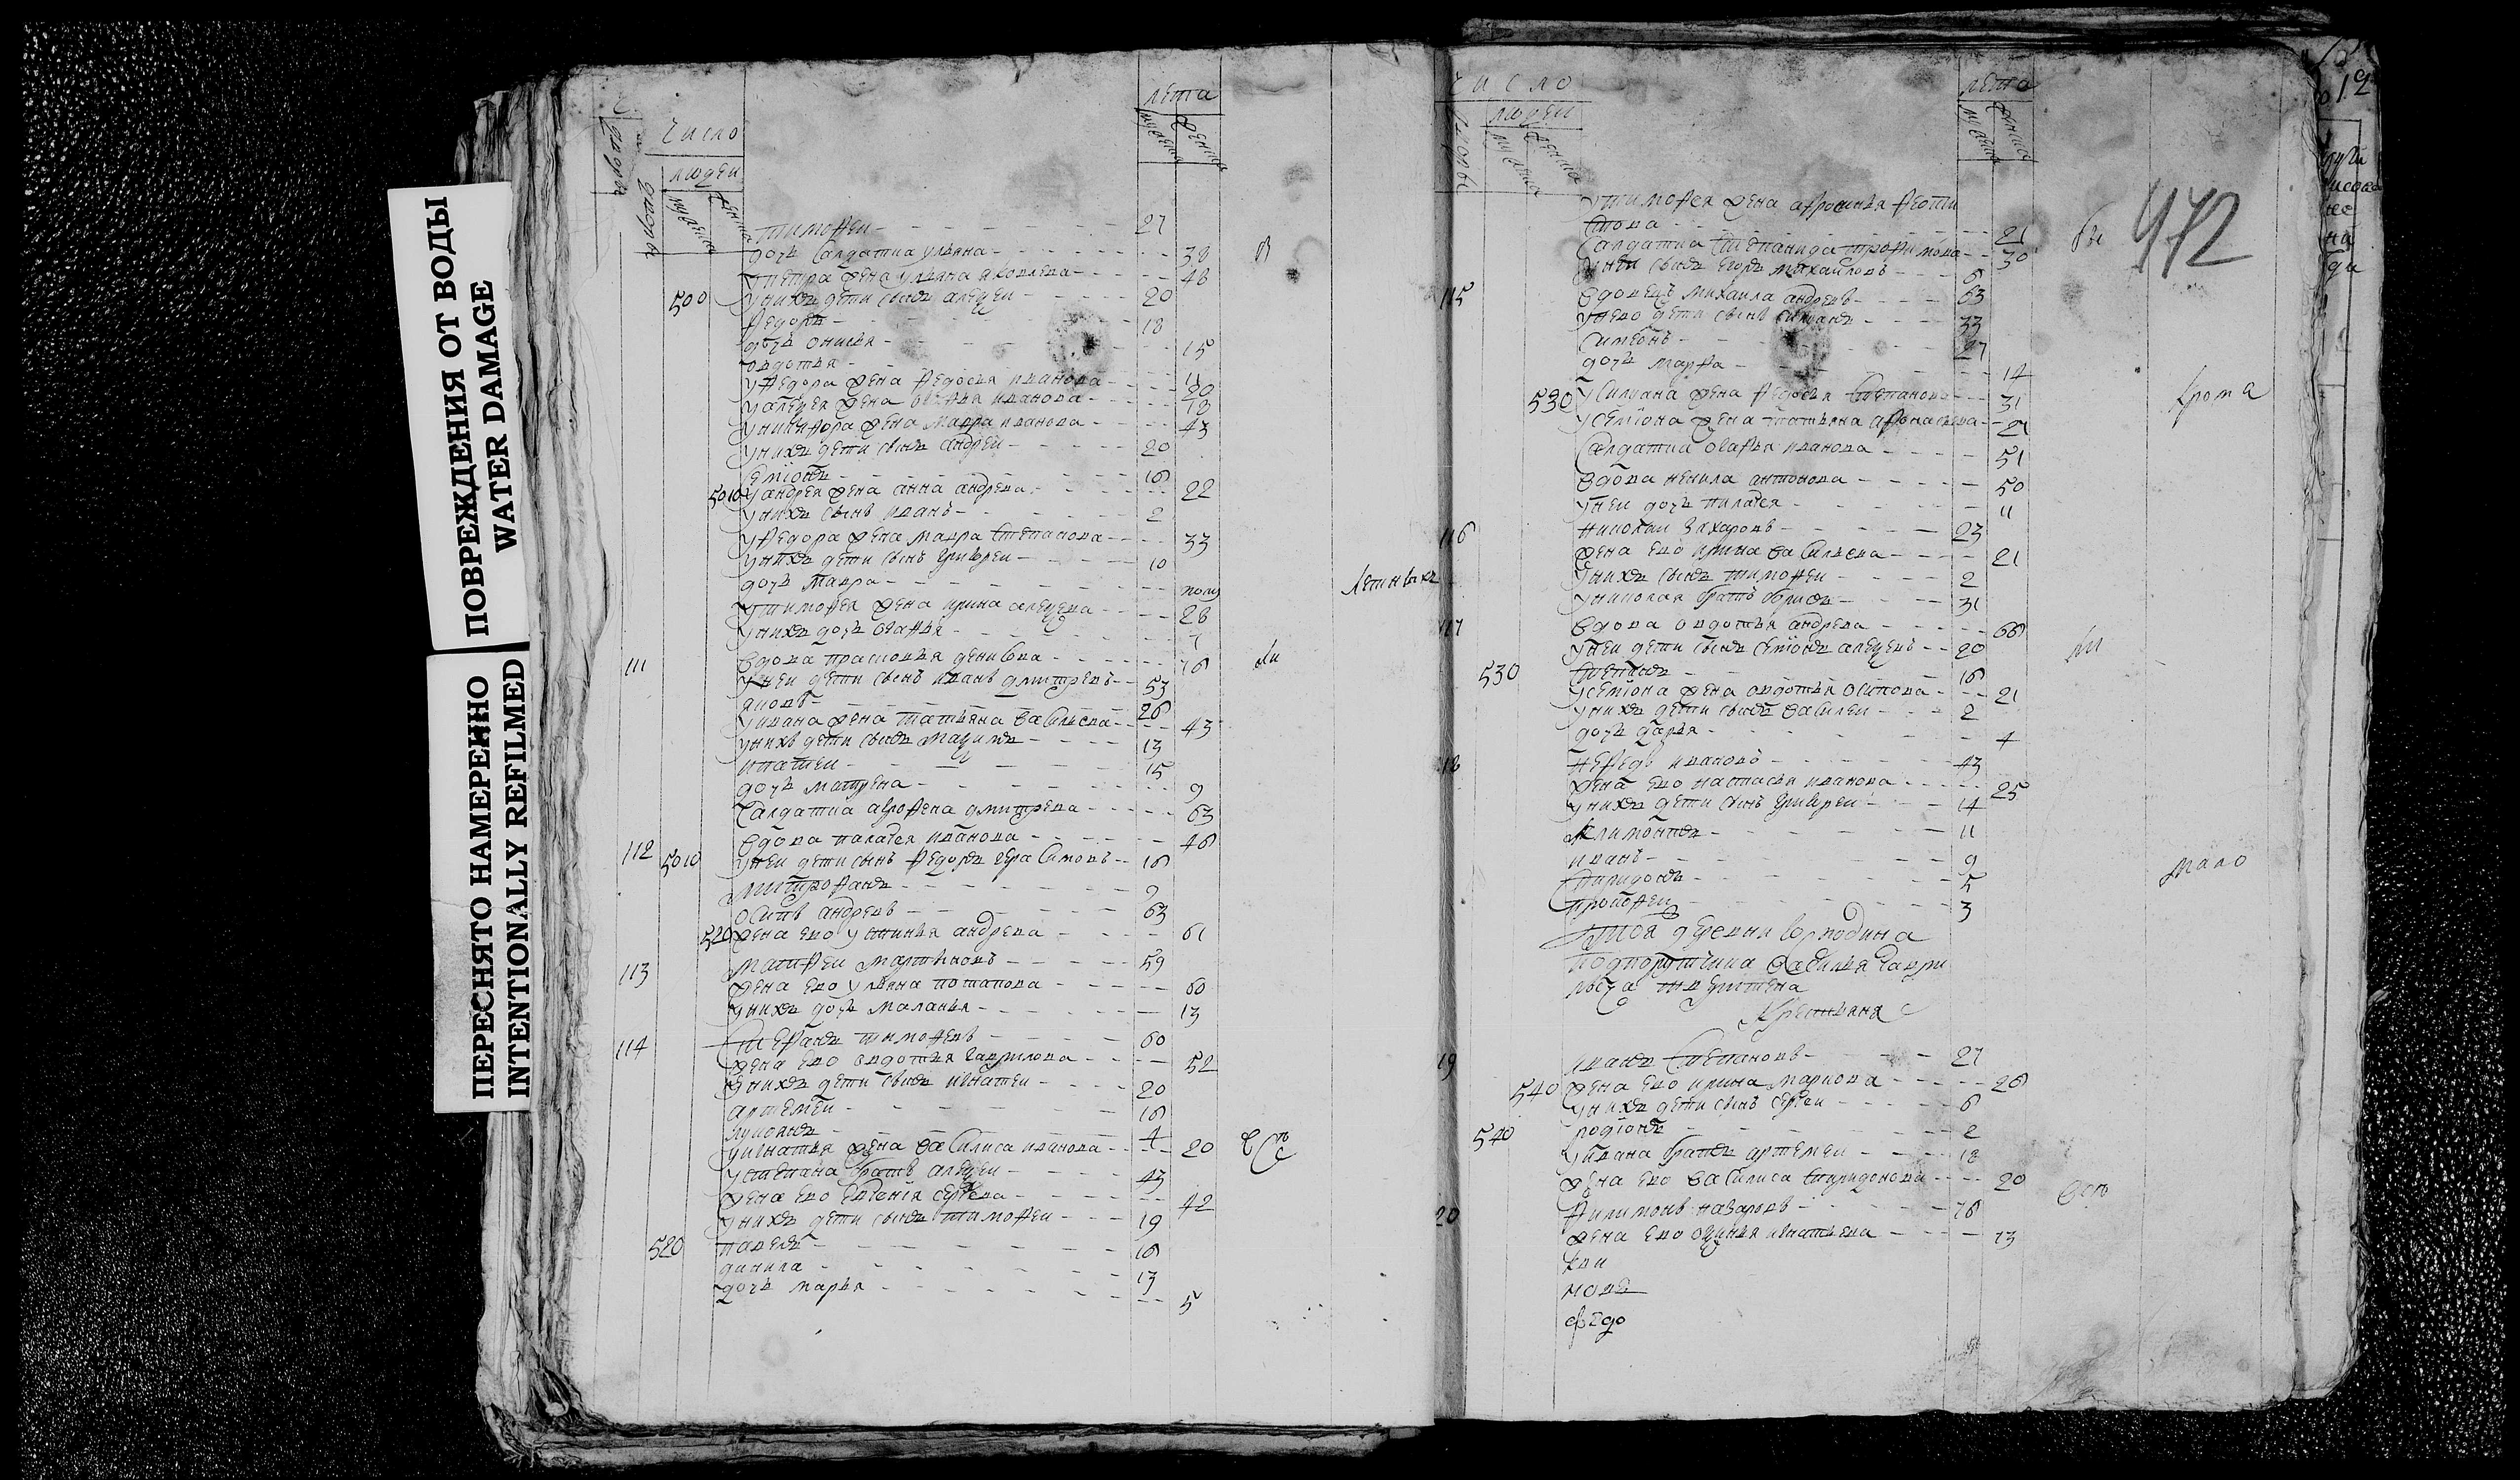 ПОВРЕЖДЕНИЯ ОТ ВОДЫ
WATER DAMAGE
ПЕРЕСНЯТО НАМЕРЕННО
INTENTIONALLY REFILMED
число
людей
лета
Тимофеи 27
дочь Салдатка ульяна 38
у петра жена ульяна яковлева 48
500 у нихъ дети сынъ алеѯеи 20
Федоръ 18
дочь онисья 15
овдотья 11
у Федора жена Федосья иванова 20
у алеѯея жена иванова
у никифора жена мавра иванова 43
у нихъ дети сынъ андреи 20
Семіонъ 16
5010 у андрея жена анна андреева 22
у нихъ сынъ иванъ 2
у Федора жена мавра степанова 33
у нихъ дети сынъ григореи 10
дочь мавра полу
у тимофея жена ирина алеѯеева 28
у нихъ дочь огафья
111 вдова прасковья денисова 76
у неи дети сынъ иванъ дмитреевъ 53
яковъ 26
у ивана жена татьяна васильева 43
у нихъ дети сынъ маѯимъ 13
игнатеи 15
дочь матрена 9
Салдатка агрофена дмитреева 63
112 вдова палагея иванова 46
5010 у неи дети сынъ Федоръ герасимовъ 16
митрофанъ 9
осипъ андреевъ 63
520 жена ево устинья андреева 61
113 матфеи мартиновъ 59
жена ево ульяна потапова 60
у нихъ дочь маланья 13
114 Стефанъ тимофеевъ 60
жена ево овдотья гаврилова 52
у нихъ дети сынъ игнатеи 20
артемеи 16
лукоянъ 4
у игнатья жена василиса иванова 20
у степана братъ алеѯеи 43
жена ево евгенія сергеева 42
у нихъ дети сынъ тимофеи 19
520 павелъ 16
данила 13
дочь марья 5
число
людеи
лета
472
у тимофея жена афросинья Фекти
стова 21
Салдатка степанида трофимова 30
у неи сынъ егоръ михаиловъ 6
115 вдовецъ михаила андреевъ 63
у нево дети сынъ силуанъ 33
Симеонъ 27
дочь марфа 14
530 у силуана жена Федосья степанова 31
у семіона жена татьяна афонасьева 27
Салдатка огафья иванова 51
вдова ненила антонова 50
у неи дочь пилагея 11
116 николаи захаровъ 23
жена ево ирина васильева 21
у нихъ сынъ тимофеи 2
у николая братъ борисъ 31
117 вдова овдотья андреева 66
у неи дети сынъ семіонъ алеѯеевъ 20
530 степанъ 16
у семіона жена овдотья осипова 21
у нихъ дети сынъ василеи 2
дочь дарья 4
18 нефедъ ивановъ 43
жена ево настасья иванова 25
у нихъ дети сынъ григореи 14
климонтъ 11
иванъ 9
спиридонъ 5
прокофеи 3
тоя деревни господина
подпорутчика василья гаври
льеча
Крестьяня
19 иванъ степановъ 27
540 жена ево ирина маркова 26
у нихъ дети сынъ сергеи 6
540 родіонъ 2
у ивана братъ артемеи 18
жена ево василиса спиридонова 20
20 Филимонъ назаровъ 76
жена ево оѯинья игнатьева 73